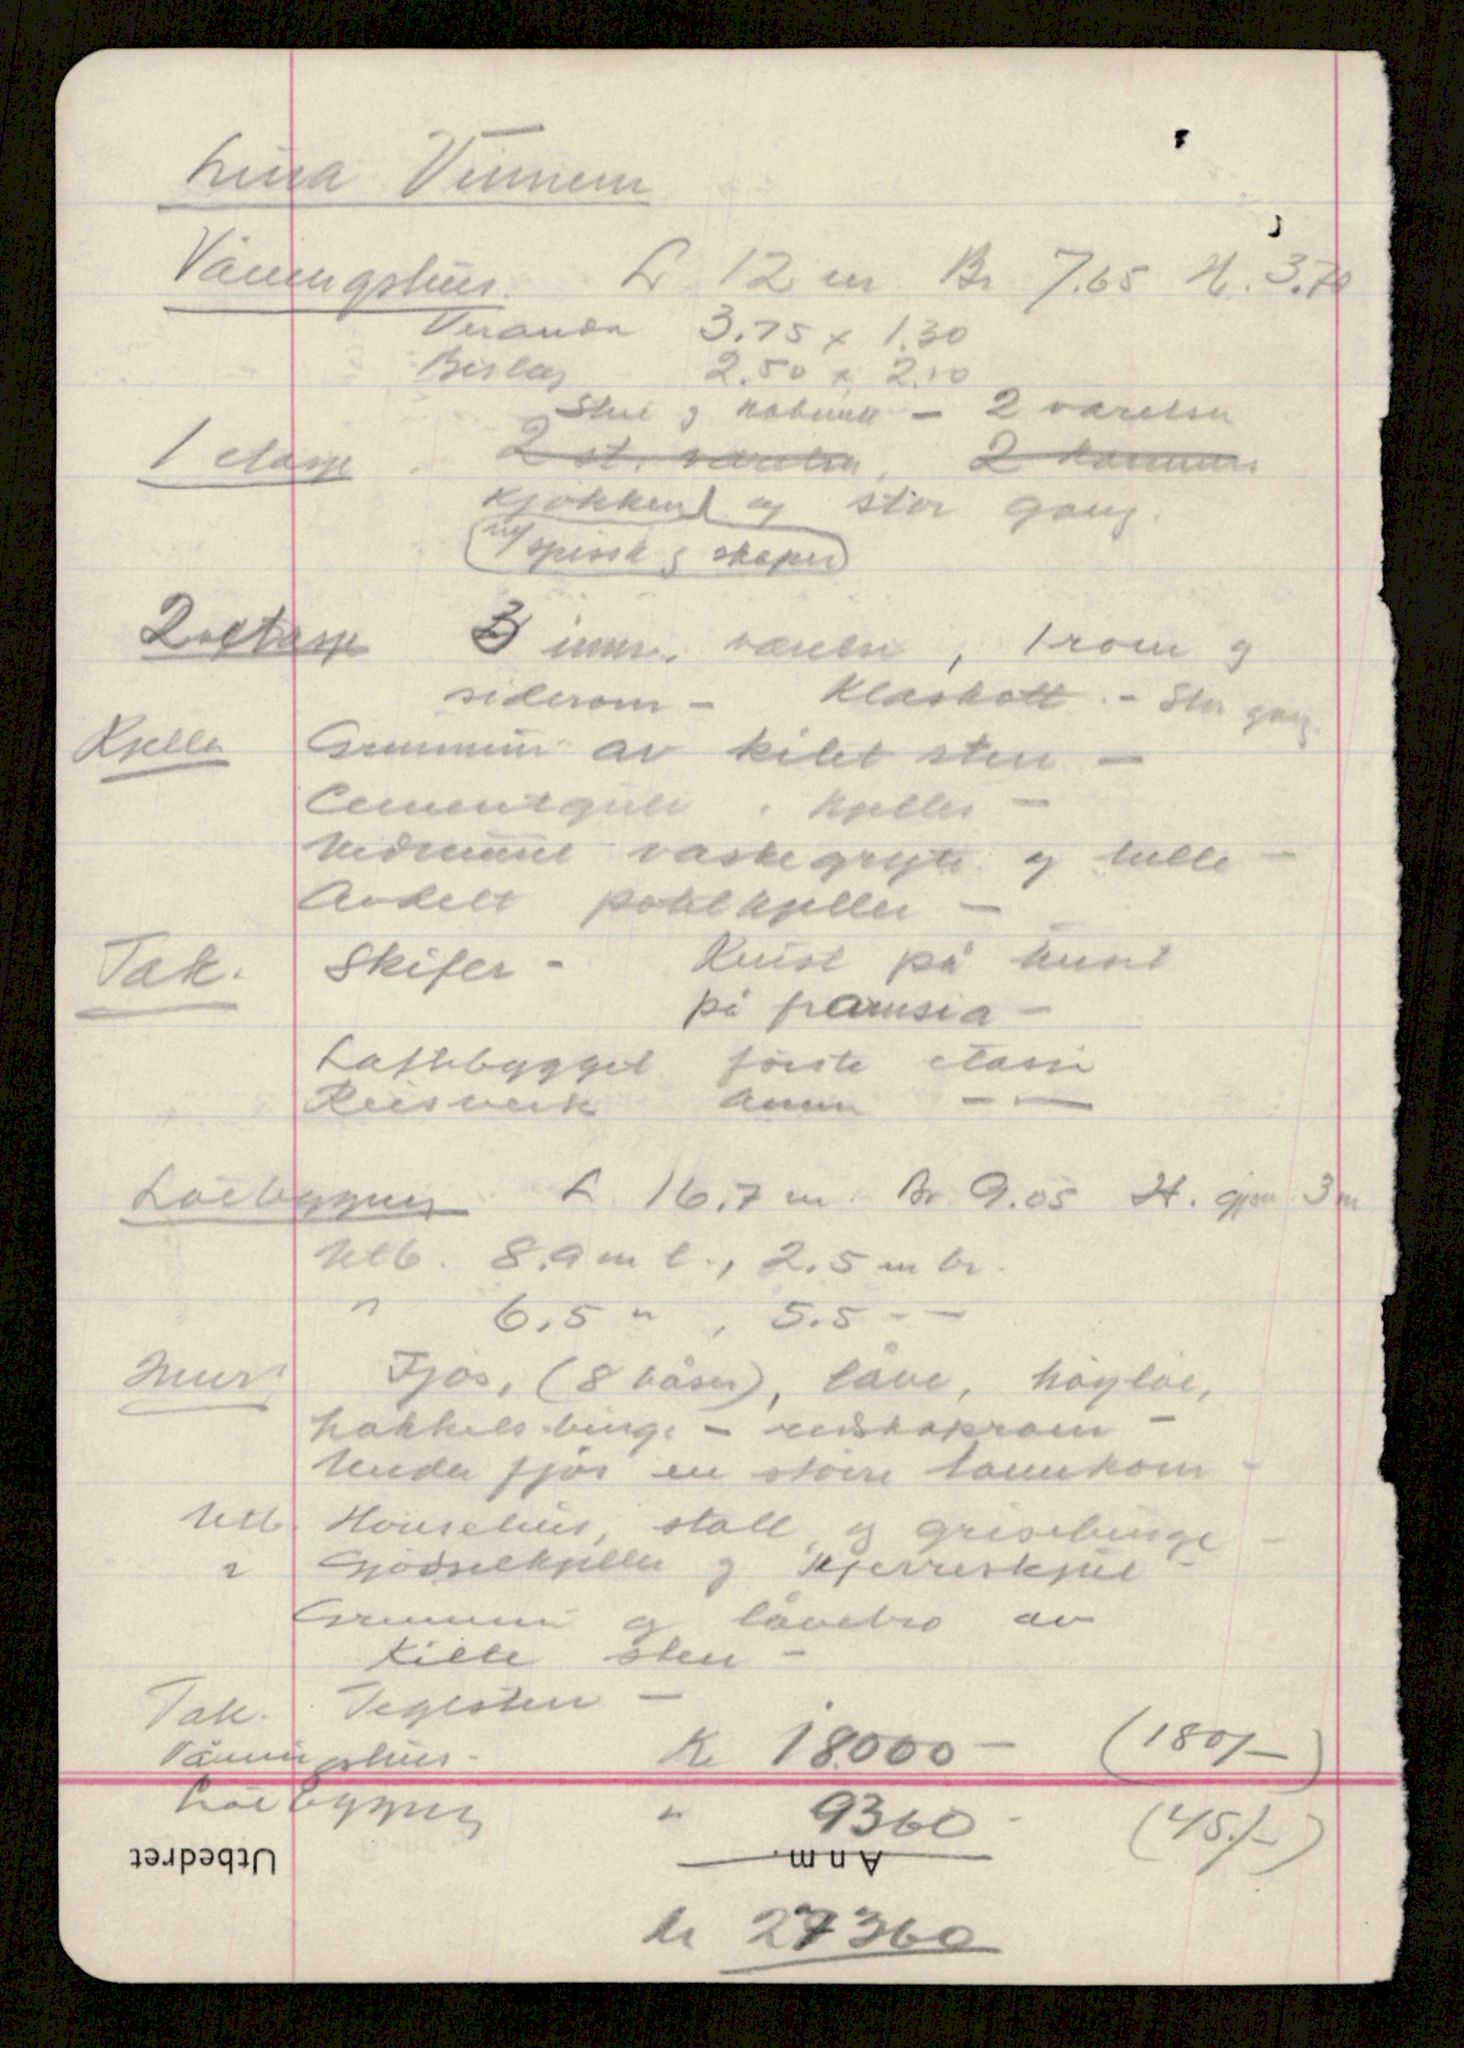 Lina Vinnem
Våningshus. L 12 m Br 7.65 H. 3.70
Veranda 3.75 x 1.30
Bislag 2.50 x 2.10
Stue g kabinett - 2 værelser
1 etasje . 2 st. værelser, 2 kammers
Kjøkken og stor gang.
m/ spissk g skaper
2 etasje 3 innr. værelse, 1 rom g
siderom - Klaskott - Stor gang
Kjeller Grunnmur av kilet sten -
Cementgulv i kjeller -
Nedmuret vaskegryte og helle -
Avdelt potetkjeller -
Tak. Skifer - Kvist på huset
på framsia -
Laftebygget første etasje
Reisverk annen - -
Løebygning L. 16.7 m Br. 9.05 H. gjen. 3 m
Utb. 8.9 m l., 2.5 m br.
" 6.5 " , 5.5 - -
Innr: Fjøs, (8 båser), låve, høyløe,
hakkels binge - redskaprom -
Under fjøs en større tomkom -
Utb. Hønsehus, stall, og grisebinge -
" Gjødselkjeller g kjerreskjul -
Grunnmur og låvebro av
kilte sten -
Tak. Teglsten -
Våningshus. Kr 18000 - (180/-)
Løebygning " 9360 - (45/-)
Utbedret Anm.
kr 27360